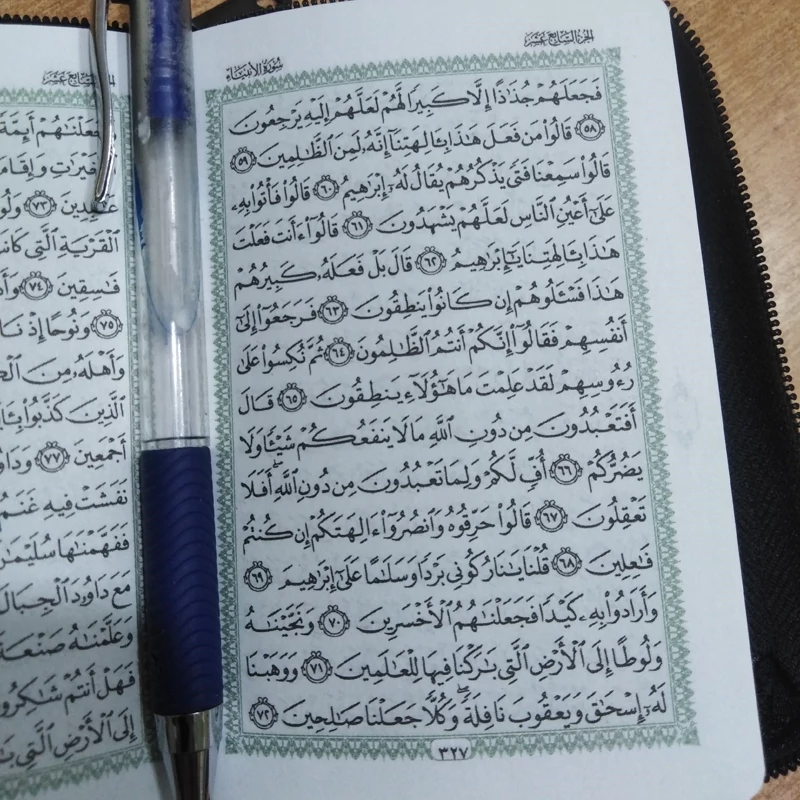 الجزء السابع عشر
سورة الأنبياء
فَجَعَلَهُمْ جُذَٰذًا إِلَّا كَبِيرًا لَّهُمْ لَعَلَّهُمْ إِلَيْهِ يَرْجِعُونَ
٥٨ قَالُوا۟ مَن فَعَلَ هَٰذَا بِـَٔالِهَتِنَآ إِنَّهُۥ لَمِنَ ٱلظَّٰلِمِينَ ٥٩
قَالُوا۟ سَمِعْنَا فَتًى يَذْكُرُهُمْ يُقَالُ لَهُۥٓ إِبْرَٰهِيمُ ٦٠ قَالُوا۟ فَأْتُوا۟ بِهِۦ
عَلَىٰٓ أَعْيُنِ ٱلنَّاسِ لَعَلَّهُمْ يَشْهَدُونَ ٦١ قَالُوٓا۟ ءَأَنتَ فَعَلْتَ
هَٰذَا بِـَٔالِهَتِنَا يَٰٓإِبْرَٰهِيمُ ٦٢ قَالَ بَلْ فَعَلَهُۥ كَبِيرُهُمْ
هَٰذَا فَسْـَٔلُوهُمْ إِن كَانُوا۟ يَنطِقُونَ ٦٣ فَرَجَعُوٓا۟ إِلَىٰٓ
أَنفُسِهِمْ فَقَالُوٓا۟ إِنَّكُمْ أَنتُمُ ٱلظَّٰلِمُونَ ٦٤ ثُمَّ نُكِسُوا۟ عَلَىٰ
رُءُوسِهِمْ لَقَدْ عَلِمْتَ مَا هَٰٓؤُلَآءِ يَنطِقُونَ ٦٥ قَالَ
أَفَتَعْبُدُونَ مِن دُونِ ٱللَّهِ مَا لَا يَنفَعُكُمْ شَيْـًٔا وَلَا
يَضُرُّكُمْ ٦٦ أُفٍّ لَّكُمْ وَلِمَا تَعْبُدُونَ مِن دُونِ ٱللَّهِ ۖ أَفَلَا
تَعْقِلُونَ ٦٧ قَالُوا۟ حَرِّقُوهُ وَٱنصُرُوٓا۟ ءَالِهَتَكُمْ إِن كُنتُمْ
فَٰعِلِينَ ٦٨ قُلْنَا يَٰنَارُ كُونِى بَرْدًا وَسَلَٰمًا عَلَىٰٓ إِبْرَٰهِيمَ ٦٩
وَأَرَادُوا۟ بِهِۦ كَيْدًا فَجَعَلْنَٰهُمُ ٱلْأَخْسَرِينَ ٧٠ وَنَجَّيْنَٰهُ
وَلُوطًا إِلَى ٱلْأَرْضِ ٱلَّتِى بَٰرَكْنَا فِيهَا لِلْعَٰلَمِينَ ٧١ وَوَهَبْنَا
لَهُۥٓ إِسْحَٰقَ وَيَعْقُوبَ نَافِلَةً ۖ وَكُلًّا جَعَلْنَا صَٰلِحِينَ ٧٢
٣٢٧
السابع عشر
أَئِمَّةً
وَإِقَامَ
٧٣ وَلُوطًا
ٱلْقَرْيَةِ ٱلَّتِى كَانَت
فَٰسِقِينَ ٧٤
٧٥ وَنُوحًا إِذْ
وَأَهْلَهُۥ مِنَ
ٱلَّذِينَ كَذَّبُوا۟
أَجْمَعِينَ ٧٧
نَفَشَتْ فِيهِ غَنَمُ
فَفَهَّمْنَٰهَا سُلَيْمَٰنَ
مَعَ دَاوُۥدَ ٱلْجِبَالَ
وَعَلَّمْنَٰهُ صَنْعَةَ
فَهَلْ أَنتُمْ شَٰكِرُونَ
إِلَى ٱلْأَرْضِ ٱلَّتِى